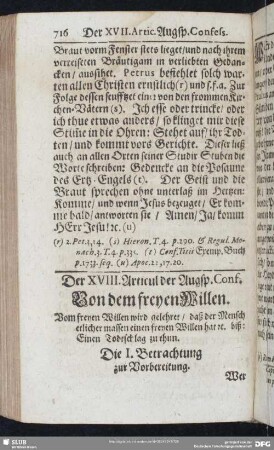 716 Der XVII. Artic. der Augsp. Confess.
Braut vorm Fenster stets lieget/und nach ihrem
verreiseten Bräutigam in verliebten Gedan-
cken/ aussihet. Petrus befiehlet solch war-
ten allen Christen ernstlich (r) und s. f. a. Zur
Folge dessen seuffzet einer von den frommen Kir-
chen-Vätern (s). Ich esse oder trincke/ oder
ich thue etwas anders/ so klinget mir diese
Stim̃e in die Ohren: Stehet auf/ ihr Tod-
ten/ und kommt vors Gerichte. Dieser ließ
auch an allen Orten seiner Studir Stuben die
Worte schreiben: Gedencke an die Posaune
des Ertz-Engels (t). Der Geist und die
Braut sprechen ohne unterlaß im Hertzen:
Komme/ und wenn JEsus bezeuget/ Er kom-
me bald/ antworten sie/ Amen/ Ja/ komm
HErr JEsu! ꝛc. (u)
(r) 2. Pet. 3, 14. (s) Hieron, T. 4. p. 290. & Regul. Mo-
nach. 3. T. 4. p. 331. (t) Conf. Titii Exemp. Buch
p. 1753. seq. (u) Apoc. 22, 17. 20.
Der XVIII. Articul der Augsp. Conf.
Von dem freyen Willen.
Vom freyen Willen wird gelehret/ daß der Mensch
etlicher massen einen freyen Willen hat ꝛc. biß:
Einen Todtschlag zu thun.
Die I. Betrachtung
zur Vorbereitung.
Wer
SLUB